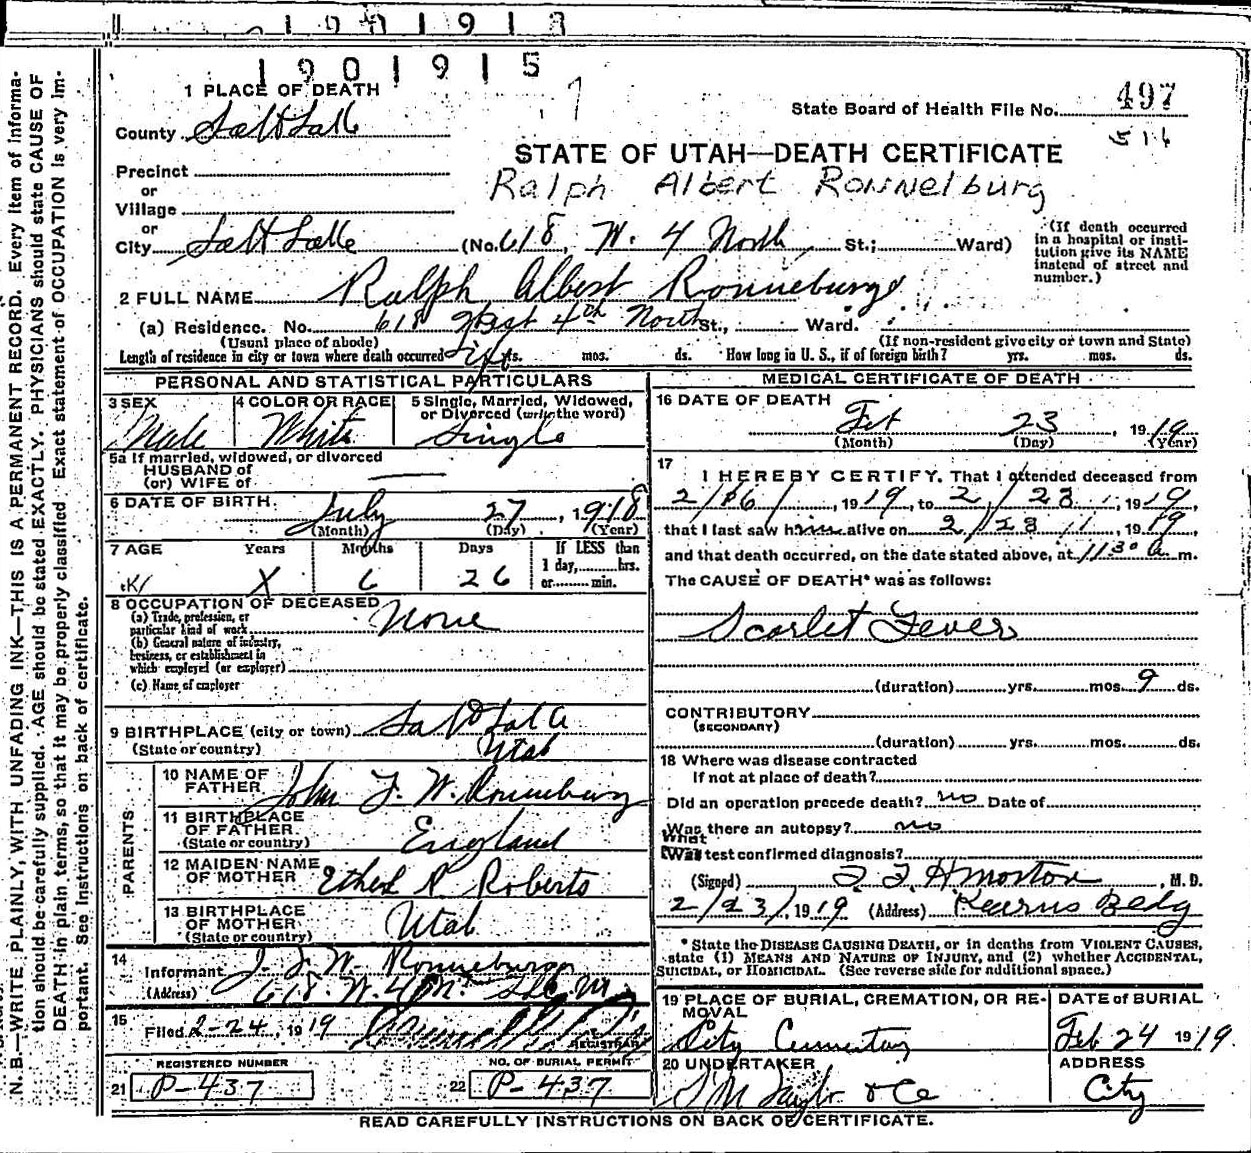 1901915
1 PLACE OF DEATH
State Board of Health File No. 497
County Salt Lake
516
STATE OF UTAH—DEATH CERTIFICATE
Precinct
Ralph Albert Ronnelburg
or
Village
or
City Salt Lake (No. 618, W. 4 North, St.; Ward)
(If death occurred in a hospital or institution give its NAME instead of street and number.)
2 FULL NAME Ralph Albert Ronneburg
(a) Residence. No. 618 West 4th North St., Ward.
(Usual place of abode) (If non-resident give city or town and State)
Length of residence in city or town where death occurred Life yrs. mos. ds. How long in U. S., if of foreign birth? yrs. mos. ds.
PERSONAL AND STATISTICAL PARTICULARS
3 SEX Male
4 COLOR OR RACE White
5 Single, Married, Widowed, or Divorced (write the word) Single
5a If married, widowed, or divorced
HUSBAND of
(or) WIFE of
6 DATE OF BIRTH. July 27, 1918
(Month) (Day) (Year)
7 AGE Years Months Days If LESS than
1 day,......hrs.
X 6 26 or......min.
8 OCCUPATION OF DECEASED None
(a) Trade, profession, or
particular kind of work
(b) General nature of industry,
business, or establishment in
which employed (or employer)
(c) Name of employer
9 BIRTHPLACE (city or town) Salt Lake
(State or country) Utah
PARENTS
10 NAME OF FATHER John F. W. Ronneburg
11 BIRTHPLACE OF FATHER (State or country) England
12 MAIDEN NAME OF MOTHER Ethel R Roberts
13 BIRTHPLACE OF MOTHER (State or country) Utah
14 Informant J. F. W. Ronneburg
(Address) 618. W. 4 No.
15 Filed 2-24, 1919
REGISTRAR
REGISTERED NUMBER
21 P-437
NO. OF BURIAL PERMIT
22 P-437
MEDICAL CERTIFICATE OF DEATH
16 DATE OF DEATH
Feb 23, 1919
(Month) (Day) (Year)
17 I HEREBY CERTIFY, That I attended deceased from
2/16/, 1919, to 2/23, 1919,
that I last saw him alive on 2/23, 1919
and that death occurred, on the date stated above, at 1130 a m.
The CAUSE OF DEATH* was as follows:
Scarlet Fever
(duration) yrs. mos. 9 ds.
CONTRIBUTORY
(SECONDARY)
(duration) yrs. mos. ds.
18 Where was disease contracted
If not at place of death?
Did an operation precede death? no Date of
Was there an autopsy? no
What test confirmed diagnosis?
(Signed) , M. D.
2/23/, 1919 (Address) Kearns Bldg
* State the DISEASE CAUSING DEATH, or in deaths from VIOLENT CAUSES,
state (1) MEANS AND NATURE OF INJURY, and (2) whether ACCIDENTAL,
SUICIDAL, or HOMICIDAL. (See reverse side for additional space.)
19 PLACE OF BURIAL, CREMATION, OR REMOVAL
City Cemetery
DATE OF BURIAL
Feb 24 1919.
20 UNDERTAKER
S M Taylor & Co
ADDRESS
City
READ CAREFULLY INSTRUCTIONS ON BACK OF CERTIFICATE.
N. B.—WRITE PLAINLY, WITH UNFADING INK—THIS IS A PERMANENT RECORD. Every item of informa-
tion should be carefully supplied. AGE should be stated EXACTLY. PHYSICIANS should state CAUSE OF
DEATH in plain terms, so that it may be properly classified. Exact statement of OCCUPATION is very im-
portant. See instructions on back of certificate.